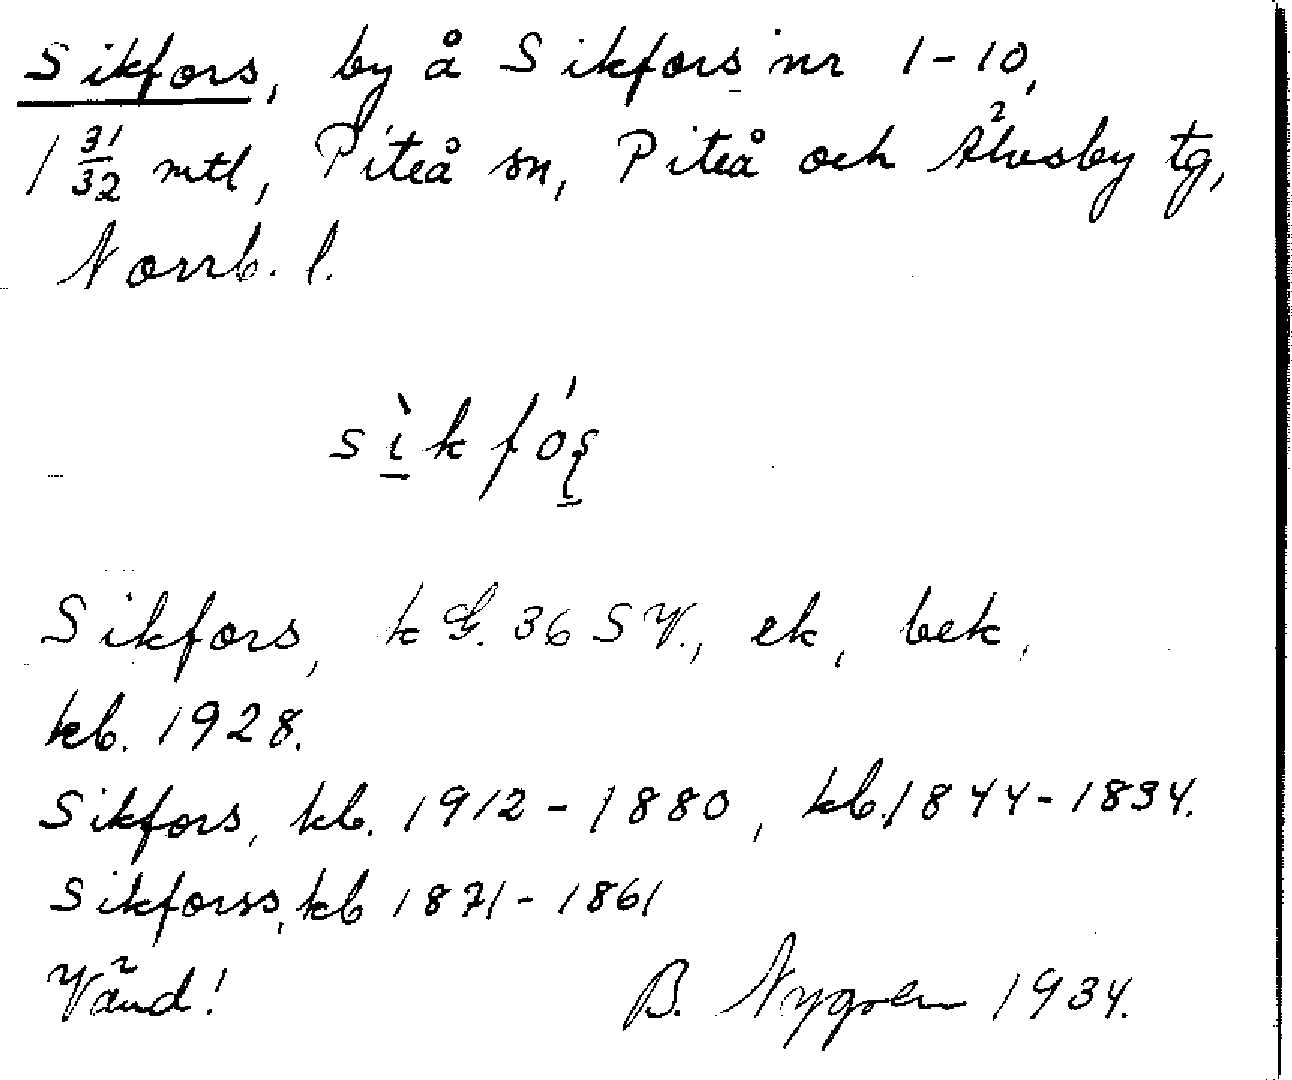 Sikfors, by å Sikfors nr 1-10,
1 31/32 mtl, Piteå sn, Piteå och Älvsby tg,
Norrb. l.
sìkfós̩
Sikfors, k G. 36 SV., ek, bek,
kb. 1928.
Sikfors, kb. 1912-1880, kb. 1844-1834.
Sikforss, kb 1871-1861
Vänd! B. Nygren 1934.